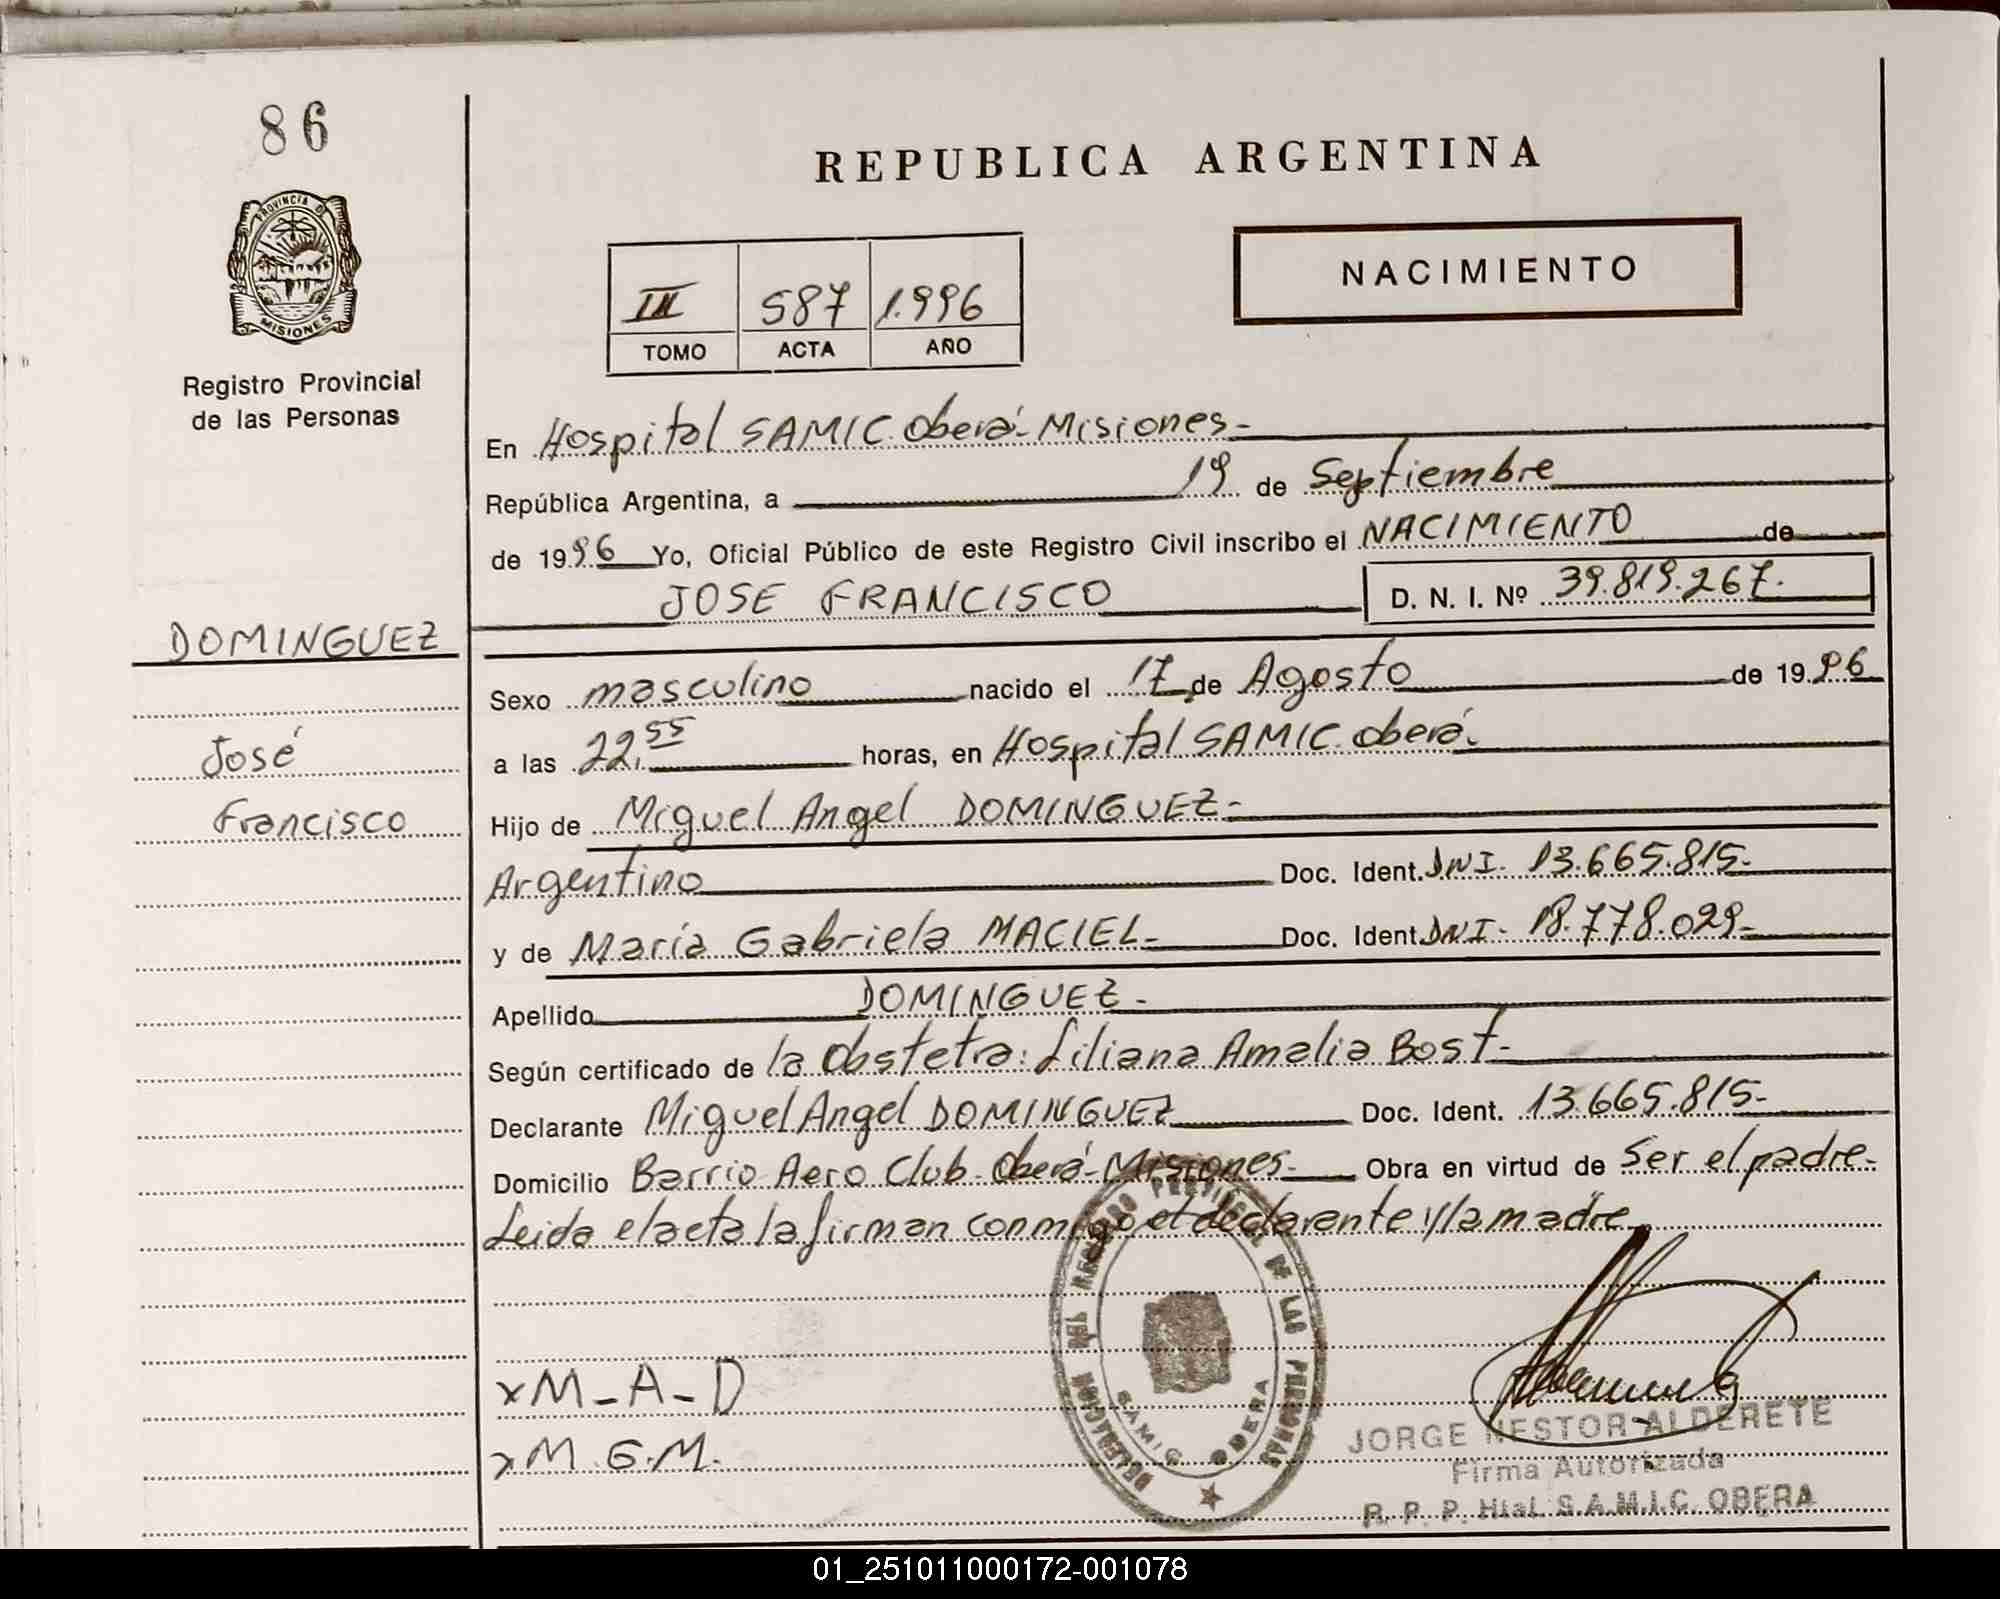 86
PROVINCIA DE
MISIONES
Registro Provincial
de las Personas
DOMINGUEZ
José
Francisco
REPUBLICA ARGENTINA
NACIMIENTO
III 587 1.996
TOMO ACTA AÑO
En Hospital SAMIC. Oberá- Misiones-
República Argentina, a 19 de Septiembre
de 1996 Yo, Oficial Público de este Registro Civil inscribo el NACIMIENTO de
JOSE FRANCISCO D. N. I. Nº 39.819.267.
Sexo masculino nacido el 17 de Agosto de 1996
a las 22.55 horas, en Hospital SAMIC. Oberá.
Hijo de Miguel Angel DOMINGUEZ-
Argentino Doc. Ident. DNI. 13.665.815-
y de María Gabriela MACIEL- Doc. Ident. DNI- 18.778.029-
Apellido DOMINGUEZ-
Según certificado de la Obstetra: Liliana Amalia Bost-
Declarante Miguel Angel DOMINGUEZ Doc. Ident. 13.665.815-
Domicilio Barrio Aero Club- Oberá- Misiones- Obra en virtud de Ser el padre-
Leida el acta la firman conmigo el declarante y la madre
DELEGACION DEL REGISTRO PROVINCIAL DE LAS PERSONAS
SAMIC OBERA
x M-A-D
x M.G.M.
JORGE NESTOR ALDERETE
Firma Autorizada
R. P. P. Htal. S.A.M.I.C. OBERA
01_251011000172-001078